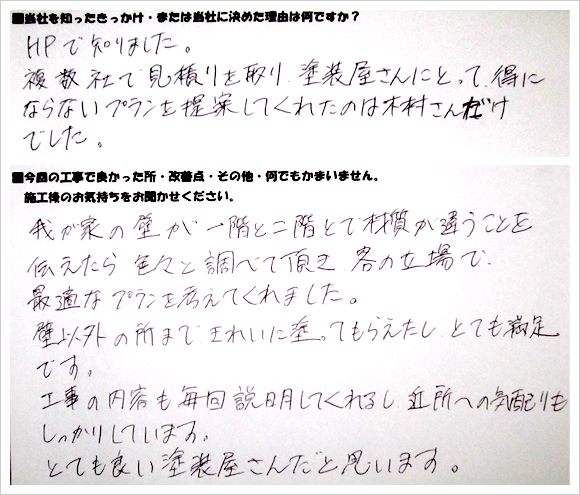 ■当社を知ったきっかけ・または当社に決めた理由は何ですか？
HPで知りました。
複数社で見積りを取り、塗装屋さんにとって、得に
ならないプランを提案してくれたのは木村さんだけ
でした。
■今回の工事で良かった所・改善点・その他・何でもかまいません。
施工後のお気持ちをお聞かせください。
我が家の壁が一階と二階とで材質が違うことを
伝えたら色々と調べて頂き 客の立場で、
最適なプランを考えてくれました。
壁以外の所まできれいに塗ってもらえたし、とても満足
です。
工事の内容も毎回説明してくれるし、近所への気配りも
しっかりしています。
とても良い塗装屋さんだと思います。